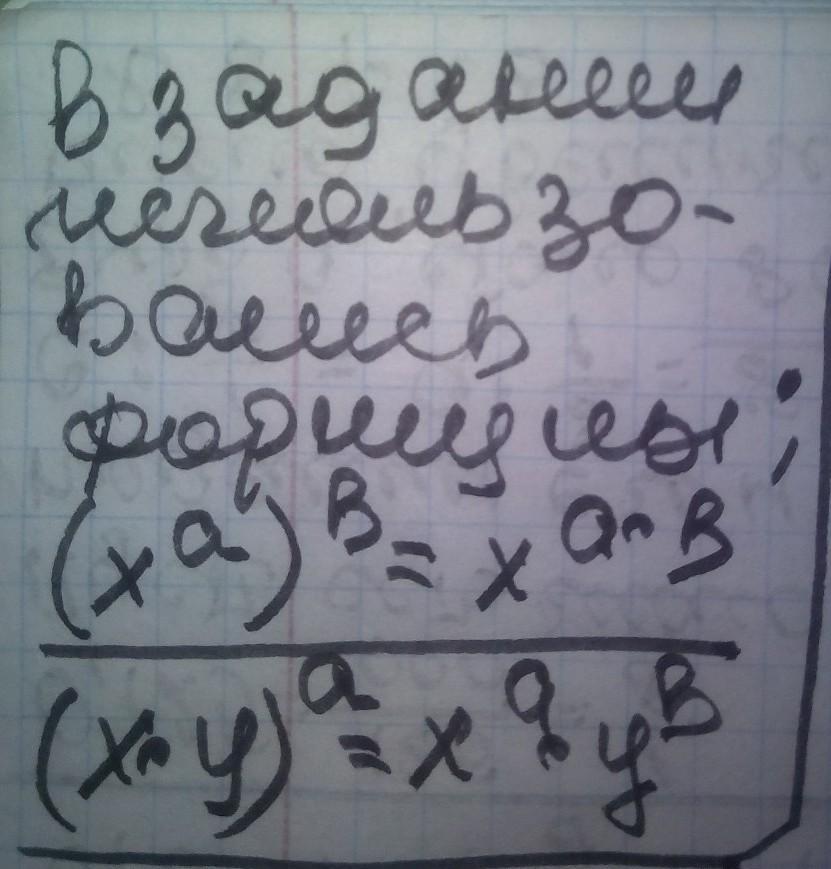 В задании
исполь зо-
вались
формулы;
(x^a)^B = x^a·B
(x·y)^a = x^a·y^B